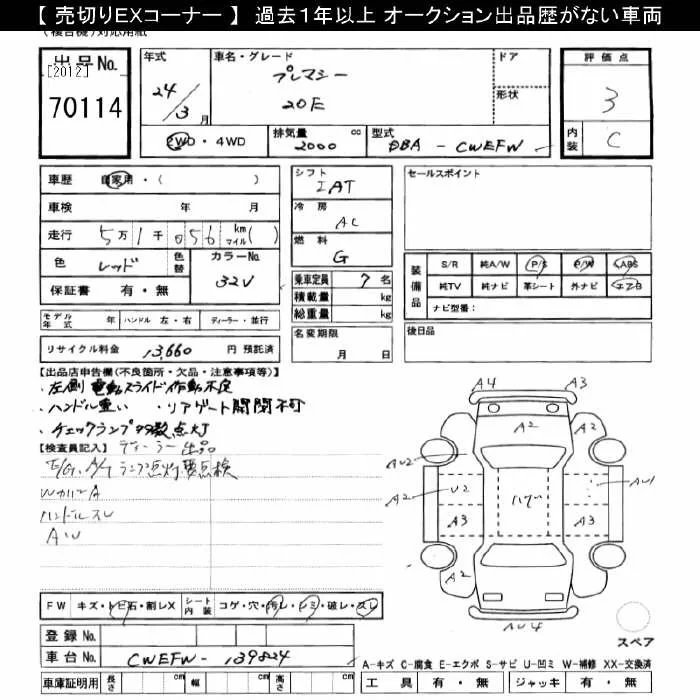 【 売切りEXコーナー 】 過去1年以上 オークション出品歴がない車両
出品No.
[2012]
70114
年式
24/3月
車名・グレード
プレマシー
20E
ドア
形状
2WD・4WD
排気量 cc
2000
型式
DBA - CWEFW
評価点
3
内装
C
車歴 自家用・( )
車検 年 月
走行 5万1千056 km マイル( )
色 レッド
色替
カラーNo.
32V
保証書 有・無
シフト
IAT
冷房
AC
燃料
G
乗車定員 7名
積載量 kg
総重量 kg
セールスポイント
装備品
S/R 純A/W P/S P/W ABS
純TV 純ナビ 革シート 外ナビ エアB
ナビ型番:
モデル年式 年 ハンドル 左・右 ディーラー・並行
名変期限
月 日
後日品
リサイクル料金 13,660 円 預託済
【出品店申告欄(不良箇所・欠品・注意事項等)】
・左側 電動スライド作動不良
・ハンドル重い ・リアゲート開閉不可
・チェックランプ多数点灯
【検査員記入】 ディーラー出品
E/G, A/T ランプ点灯要点検
WカバーA
ハンドルスレ
AU
A4 A3
A2 A2
AU2
A2 U2 ハゲ AU1
A3 A3
A2
AU4
スペア
FW キズ・トビ石・割レX シート内装 コゲ・穴・汚レ・シミ・破レ・スレ
登録No.
車台No. CWEFW-139824
車庫証明用 長さ cm 幅 cm 高さ cm
A-キズ C-腐食 E-エクボ S-サビ U-凹ミ W-補修 XX-交換済
工具 有・無 ジャッキ 有・無